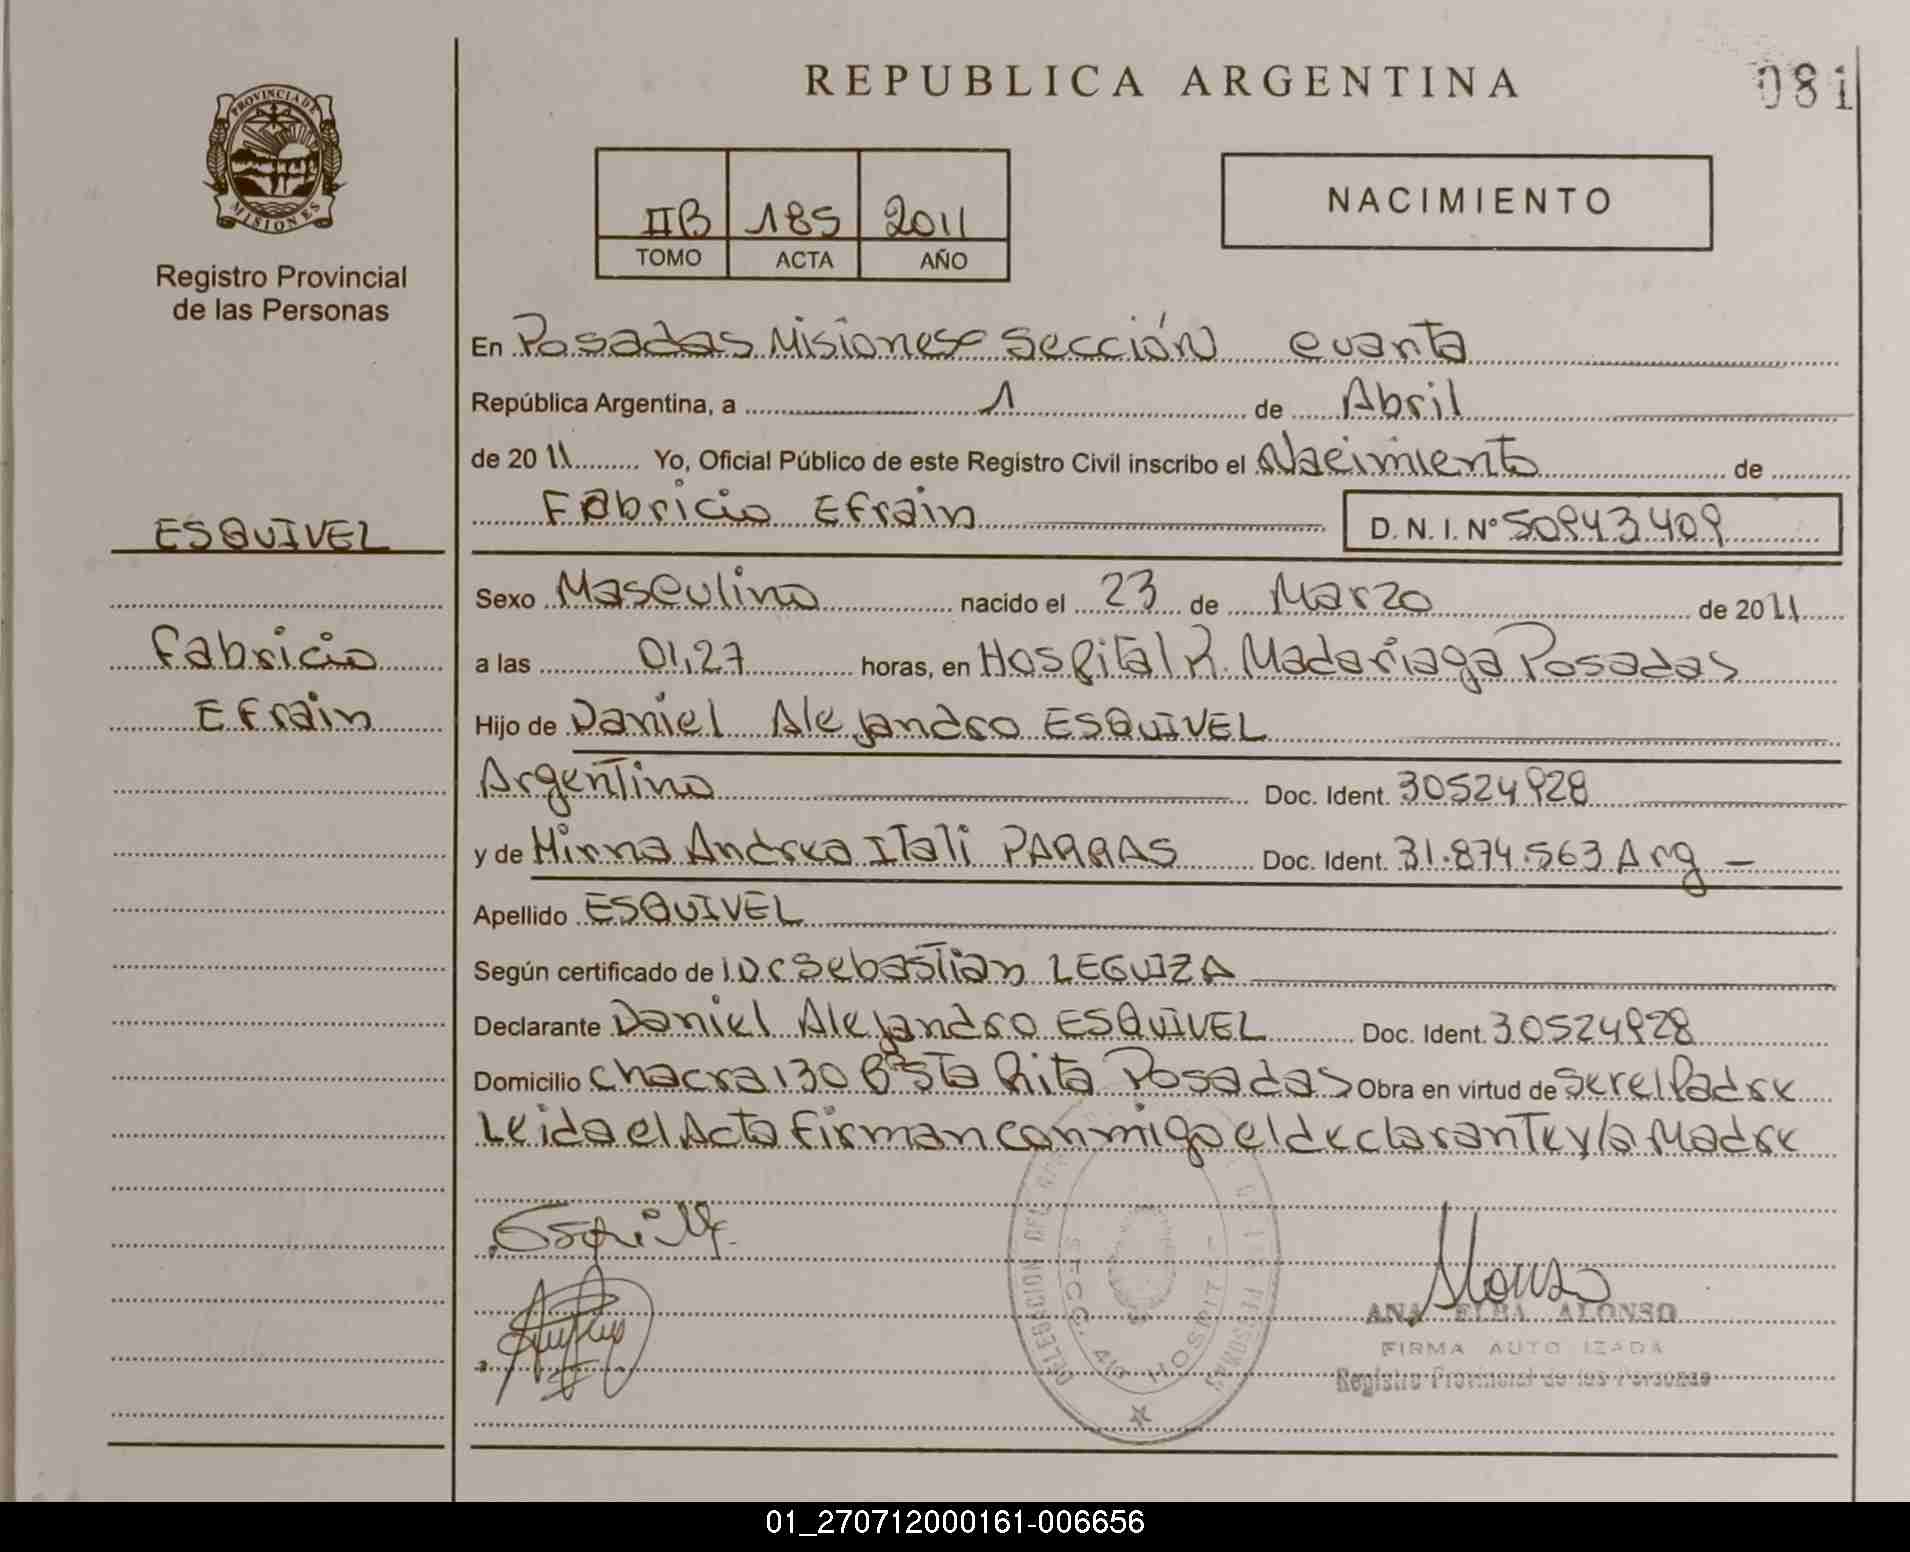 REPUBLICA ARGENTINA
081
PROVINCIA DE
MISIONES
Registro Provincial
de las Personas
IIB 185 2011
TOMO ACTA AÑO
NACIMIENTO
En Posadas Misiones Sección cuarta
República Argentina, a 1 de Abril
de 2011 Yo, Oficial Público de este Registro Civil inscribo el Nacimiento de
Fabricio Efrain D. N. I. Nº 50943409
ESQUIVEL
Fabricio
Efrain
Sexo Masculino nacido el 23 de Marzo de 2011
a las 01,27 horas, en Hospital R. Madariaga Posadas
Hijo de Daniel Alejandro ESQUIVEL
Argentino Doc. Ident. 30524928
y de Mirna Andrea Itali PARRAS Doc. Ident. 31.874.563 Arg –
Apellido ESQUIVEL
Según certificado de Sebastian LEGUIZA
Declarante Daniel Alejandro ESQUIVEL Doc. Ident. 30524928
Domicilio chacra 130 Bº Sta Rita Posadas Obra en virtud de ser el Padre
Leida el Acta firman conmigo el declarante y la Madre
Alonso
ANA ELBA ALONSO
FIRMA AUTO IZADA
Registro Provincial de las Personas
DELEGACION DEL DE LAS PERSONAS
SECC. 4º HOSPIT
01_270712000161-006656